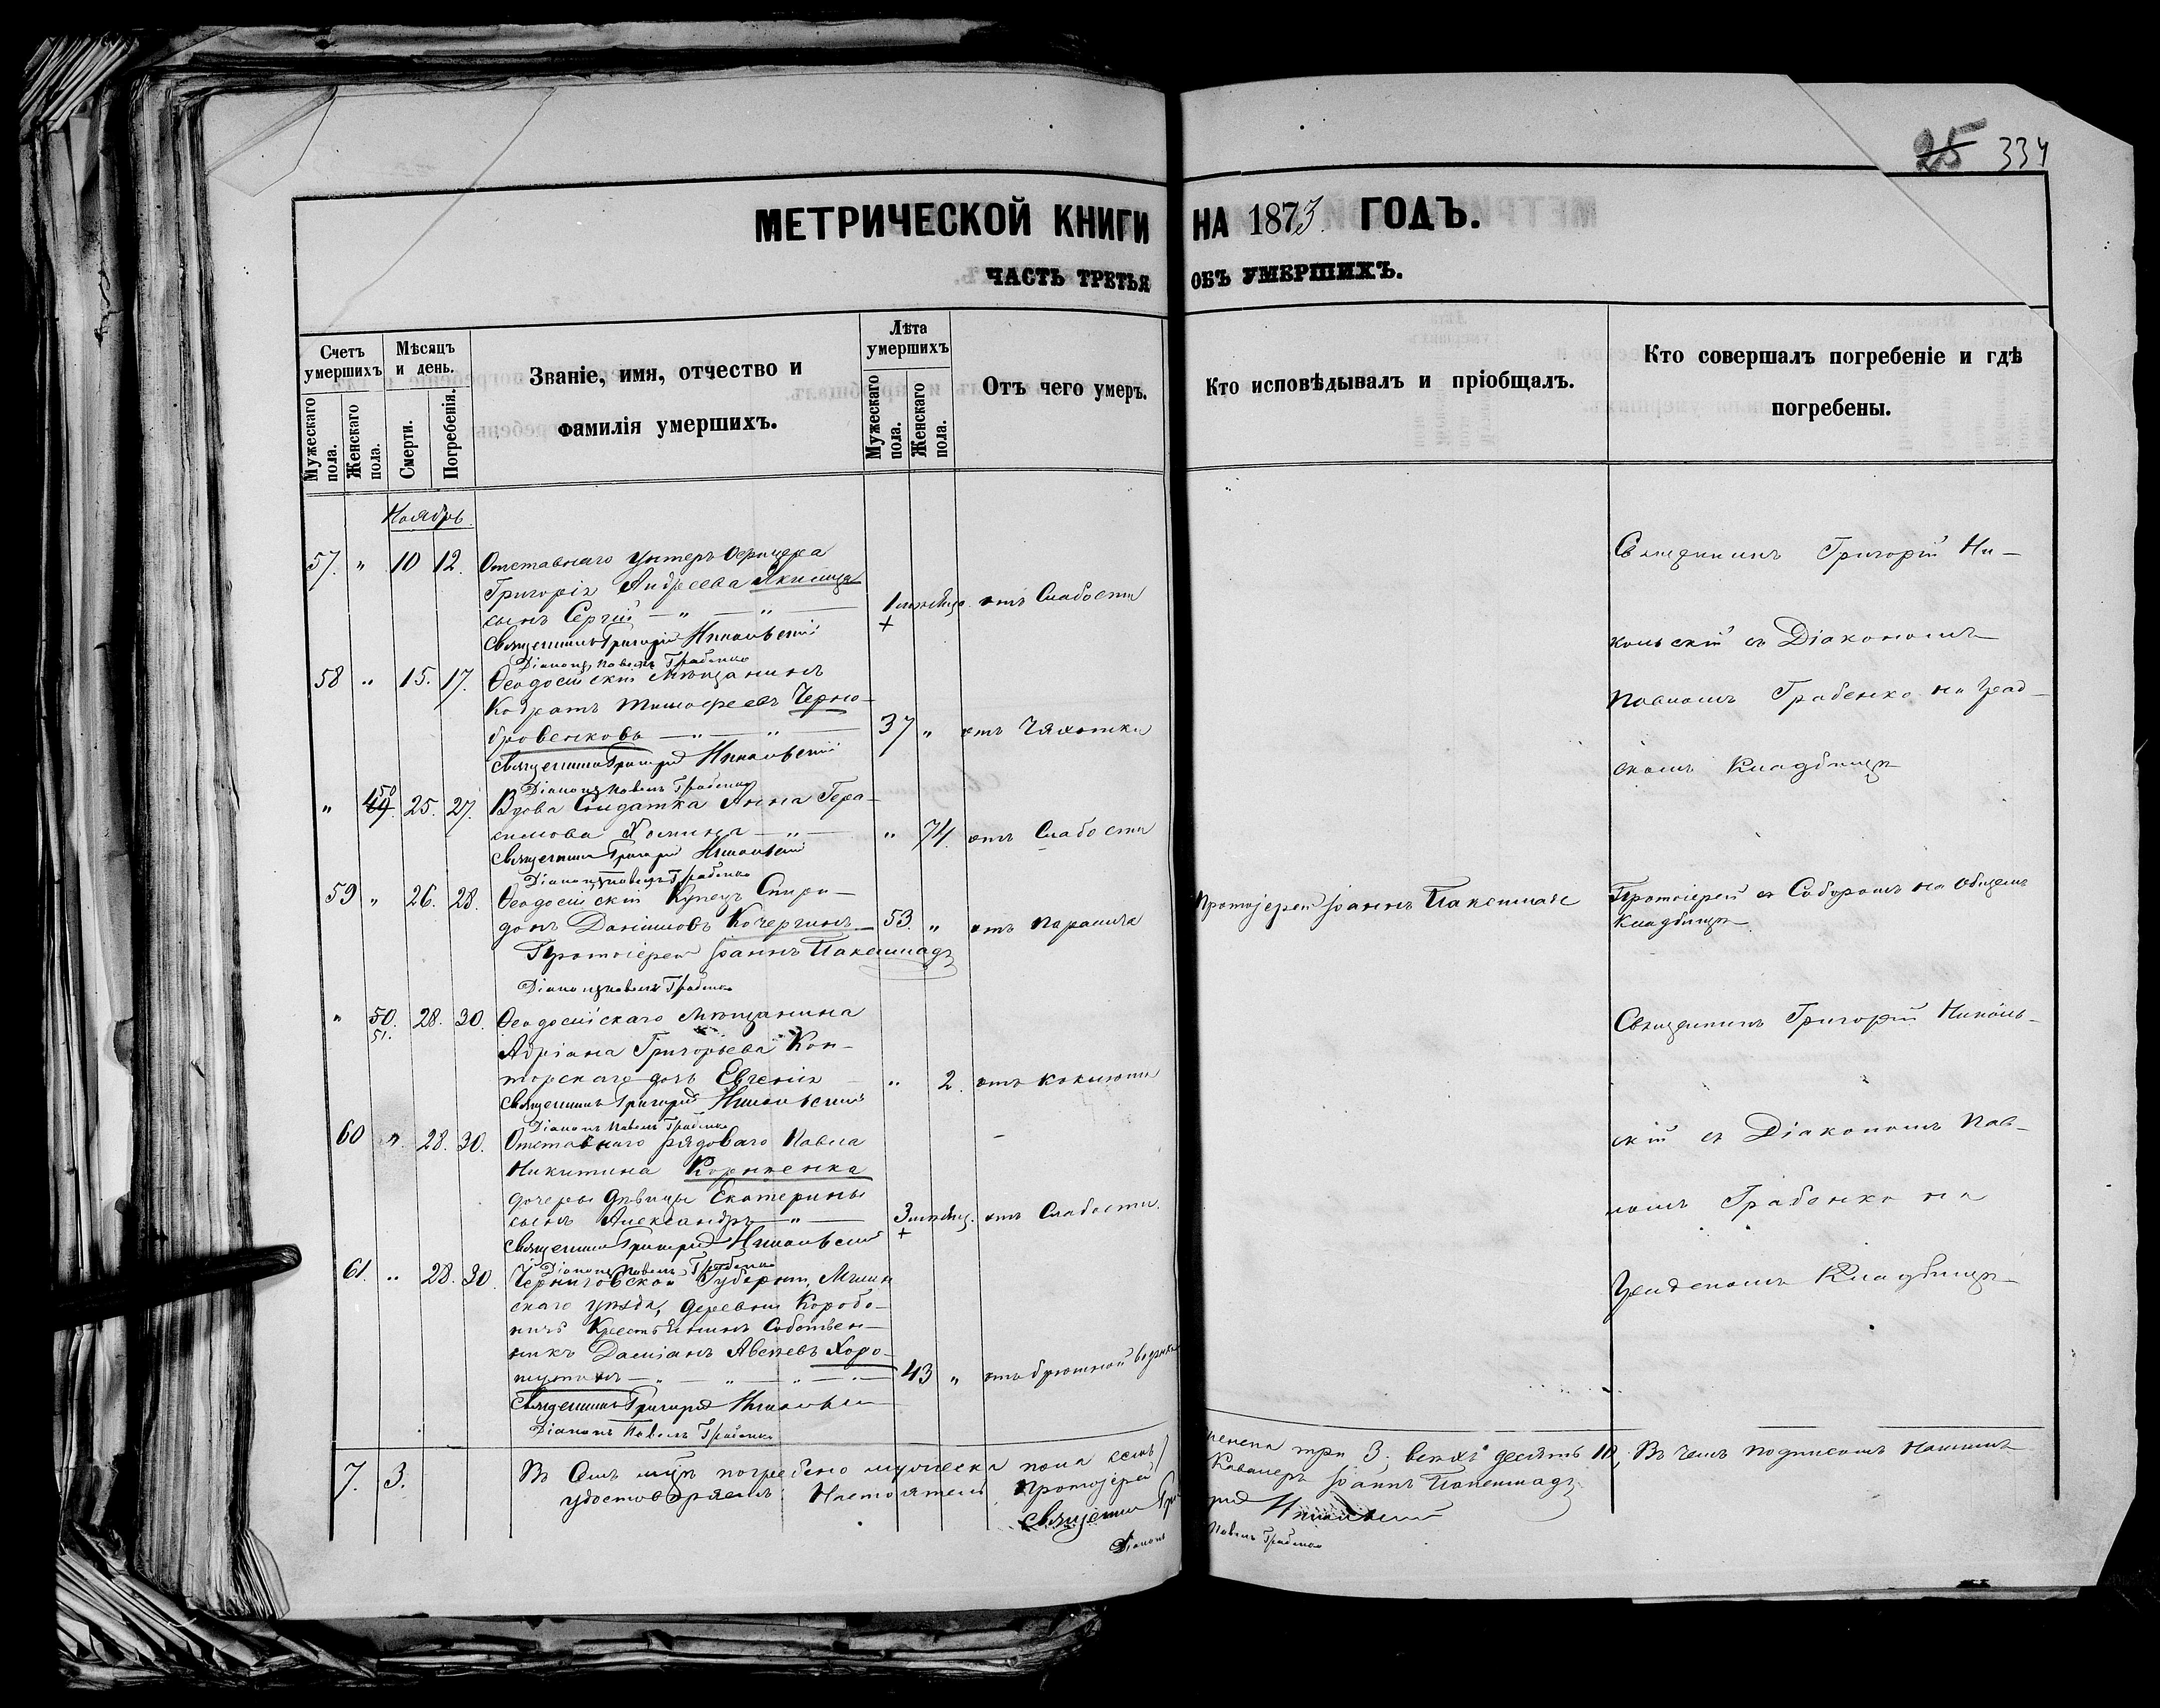 25 334
МЕТРИЧЕСКОЙ КНИГИ НА 1873. ГОДЪ.
ЧАСТЬ ТРЕТЬЯ ОБЪ УМЕРШИХЪ.
Счетъ умершихъ
Мужескаго пола.
Женскаго пола.
Мѣсяцъ и день.
Смерти.
Погребенія.
Званіе, имя, отчество и
фамилія умершихъ.
Лѣта умершихъ
Мужескаго пола.
Женскаго пола.
Отъ чего умеръ.
Кто исповѣдывалъ и пріобщалъ.
Кто совершалъ погребеніе и гдѣ
погребены.
Ноябрь
57. " 10 12. Отставнаго Унтеръ Офицера
Григорія Андреева
сынъ Сергій — " — " — 1 мѣсяца отъ Слабости
Священникъ Григорій Никольскій
Діаконъ Павелъ Грабенко
Священникъ Григорій Ни-
кольскій съ Діакономъ
Павломъ Грабенко на Град-
скомъ Кладбищѣ
58 " 15. 17. Ѳеодосійскій Мѣщанинъ
Кодратъ Тимофеевъ Черно-
бровенковъ — " — " — 37 " отъ Чахотки
Священникъ Григорій Никольскій
Діаконъ Павелъ Грабенко
" 49. 50 25. 27. Вдова Солдатка Анна Гера-
симова Хомина — " — " 74. отъ Слабости
Священникъ Григорій Никольскій
Діаконъ Павелъ Грабенко
59 " 26. 28. Ѳеодосійскій Купецъ Спири-
донъ Даніиловъ Кочергинъ — 53. " отъ Паралича
Протоіерей Іоаннъ
Діаконъ Павелъ Грабенко
Протоіерей Іоаннъ
Протоіерей съ Соборомъ на Общемъ
Кладбищѣ
" 50. 51. 28. 30. Ѳеодосійскаго Мѣщанина
Адріана Григорьева Кон-
торскаго дочь Евгенія " 2. отъ Коклюша
Священникъ Григорій Никольскій
Діаконъ Павелъ Грабенко
Священникъ Григорій Николь-
скій съ Діакономъ Пав-
ломъ Грабенко на
Кладбищѣ
60 " 28. 30. Отставнаго рядоваго Павла
Никитина Корниенка
дочери дѣвицы Екатерины
сынъ Александръ — " — 3 мѣсяц. отъ Слабости.
Священникъ Григорій Никольскій
Діаконъ Павелъ Грабенко
61. " 28. 30. Черниговской Губерніи, Мглин
скаго уѣзда, деревни Коробо-
ничъ Крестьянинъ Собствен-
никъ Даміанъ Хоро-
— " — " — " — 43 " отъ брюшной водянки
Священникъ Григорій Никольскій
Діаконъ Павелъ Грабенко
7. 3. Въ семъ м-цѣ погребено мужеска пола семь 7 женска три 3. всѣхъ десять 10, Въ чемъ подписомъ нашимъ
удостовѣряемъ: Настоятель Протоіерей Кавалеръ Іоаннъ
Священникъ Григорій Никольскій
Діаконъ Павелъ Грабенко